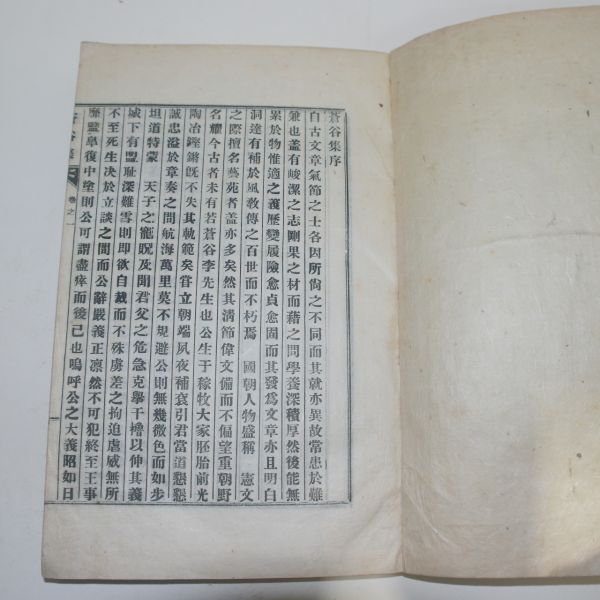 蒼谷集序
自古文章氣節之士各因所尙之不同而其就亦異故常患於難
兼也盖有峻潔之志剛果之材而藉之問學養深積厚然後能無
累於物惟適之義歷變履險愈貞愈固而其發爲文章亦且明白
洞達有補於風敎傳之百世而不朽焉　國朝人物盛稱　憲文
之際擅名藝苑者盖亦多矣然其淸節偉文備而不偏望重朝野
名耀今古者未有若蒼谷李先生也公生于稼牧大家胚胎前光
陶冶鏗鏘旣不失其軌範矣甞立朝端夙夜補袞引君當道懇懇
誠忠溢於章奏之間航海萬里莫不規避公則無幾微色而如步
坦道特蒙　天子之寵貺及聞君父之危急克擧干櫓以伸其義
城下有盟耻深難雪則即欲自裁而不殊虜差之拘迫虐威無所
不至死生决於立談之間而公辭嚴義正凛然不可犯終至王事
靡盬臯復中塗則公可謂盡瘁而後已也嗚呼公之大義昭如日
蒼谷集
卷之一